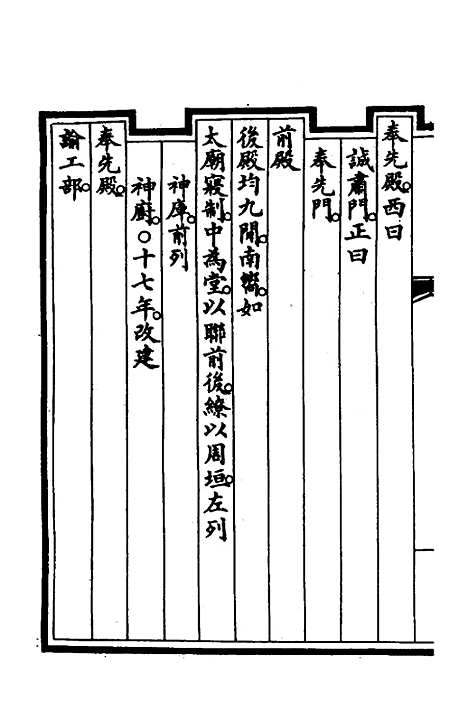 奉先殿。西曰
誠肅門。正曰
奉先門。
前殿
後殿均九間。南嚮。如
太廟寢制。中為堂。以聯前後。繚以周垣。左列
神庫。前列
神廚。○十七年。改建
奉先殿。
諭工部。